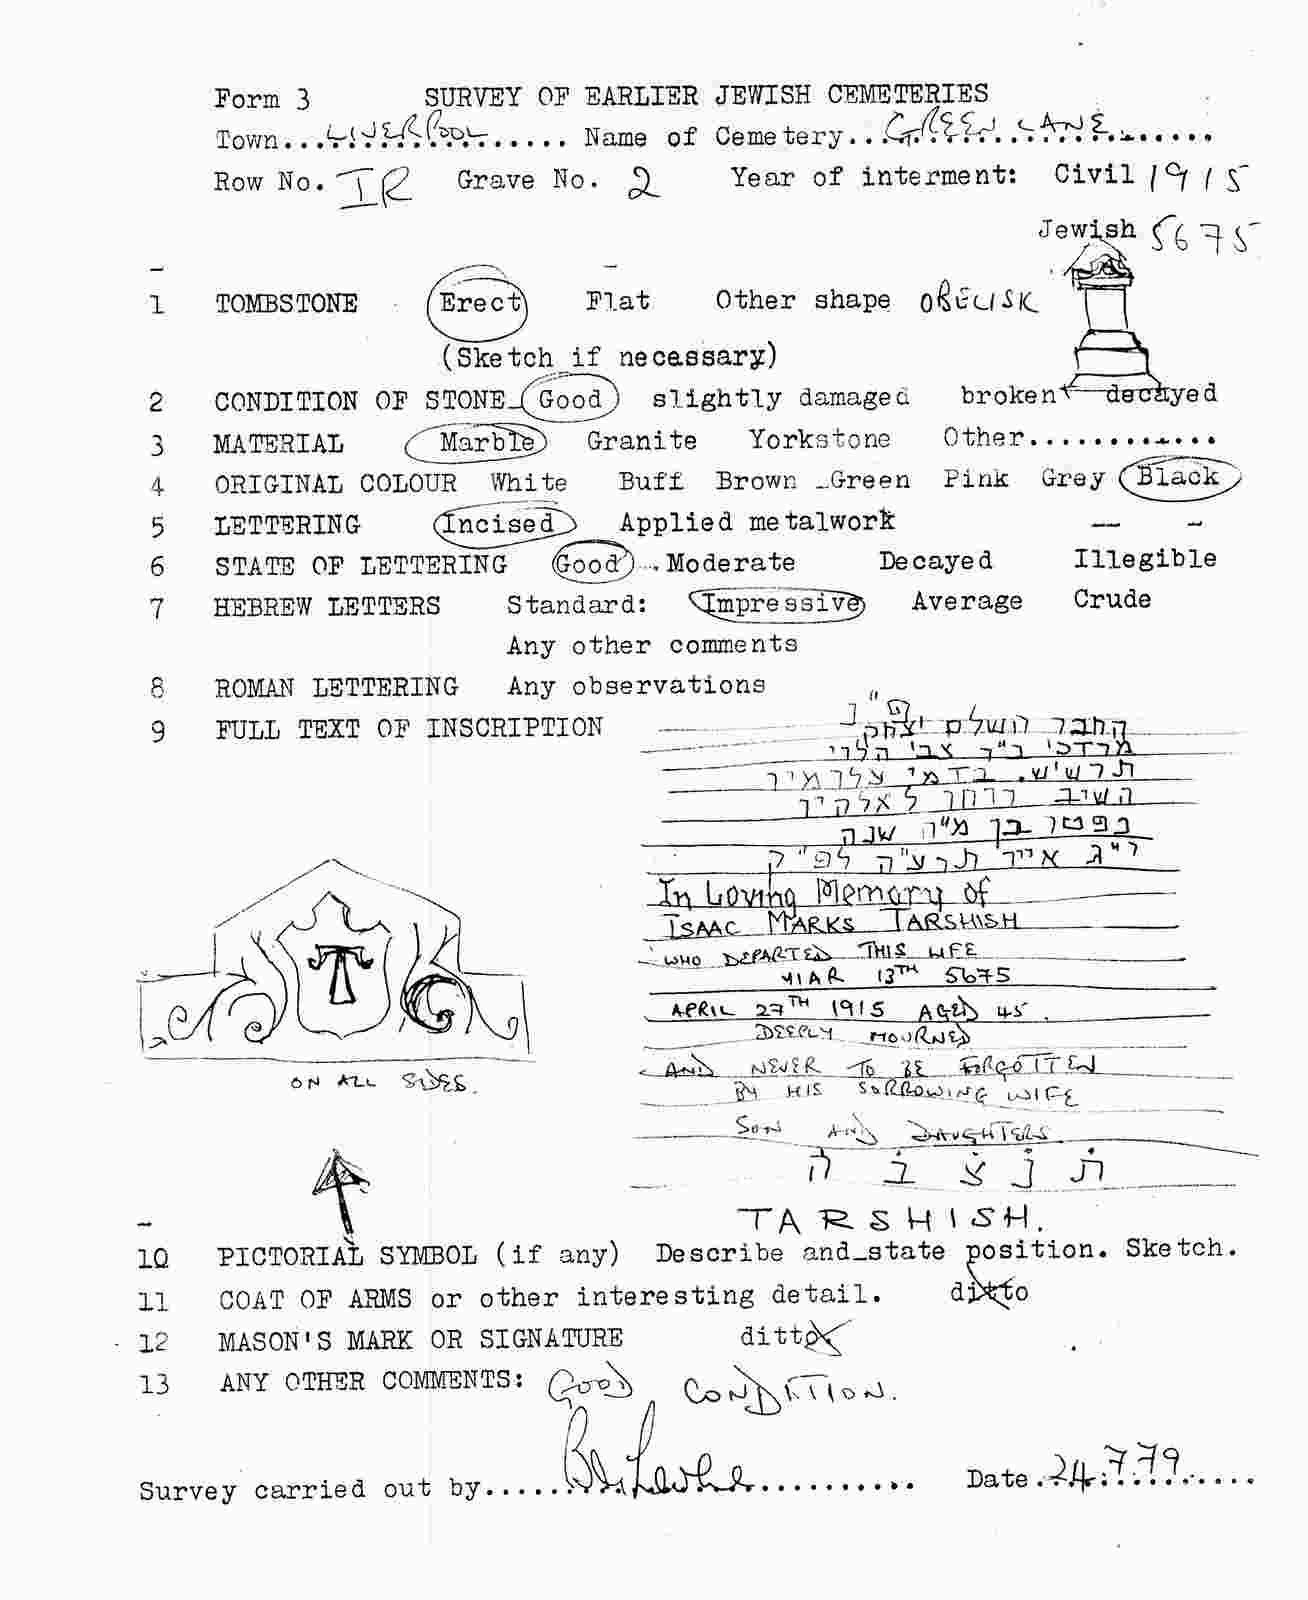 Form 3 SURVEY OF EARLIER JEWISH CEMETERIES
Town...LIVERPOOL...... Name of Cemetery...GREEN LANE.......
Row No. IR Grave No. 2 Year of interment: Civil 1915
Jewish 5675
1 TOMBSTONE Erect Flat Other shape OBELISK
(Sketch if necessary)
2 CONDITION OF STONE Good slightly damaged broken decayed
3 MATERIAL Marble Granite Yorkstone Other............
4 ORIGINAL COLOUR White Buff Brown Green Pink Grey Black
5 LETTERING Incised Applied metalwork
6 STATE OF LETTERING Good Moderate Decayed Illegible
7 HEBREW LETTERS Standard: Impressive Average Crude
Any other comments
8 ROMAN LETTERING Any observations
9 FULL TEXT OF INSCRIPTION
פ"נ
החבר השלם יצחק
מרדכי ב"ר צבי הלוי
תרשיש. בדמי
השיב רוחך לאלקיך
נפטר בן מ"ה שנה
י"ג אייר תרע"ה לפ"ק
In Loving Memory of
ISAAC MARKS TARSHISH
WHO DEPARTED THIS LIFE
YIAR 13TH 5675
APRIL 27TH 1915 AGED 45.
DEEPLY MOURNED
AND NEVER TO BE FORGOTTEN
BY HIS SORROWING WIFE
SON AND DAUGHTERS.
ת נ צ ב ה
TARSHISH.
T
ON ALL SIDES.
10 PICTORIAL SYMBOL (if any) Describe and state position. Sketch.
11 COAT OF ARMS or other interesting detail. ditto
12 MASON'S MARK OR SIGNATURE ditto
13 ANY OTHER COMMENTS: GOOD CONDITION.
Survey carried out by.................... Date.24.7.79.......